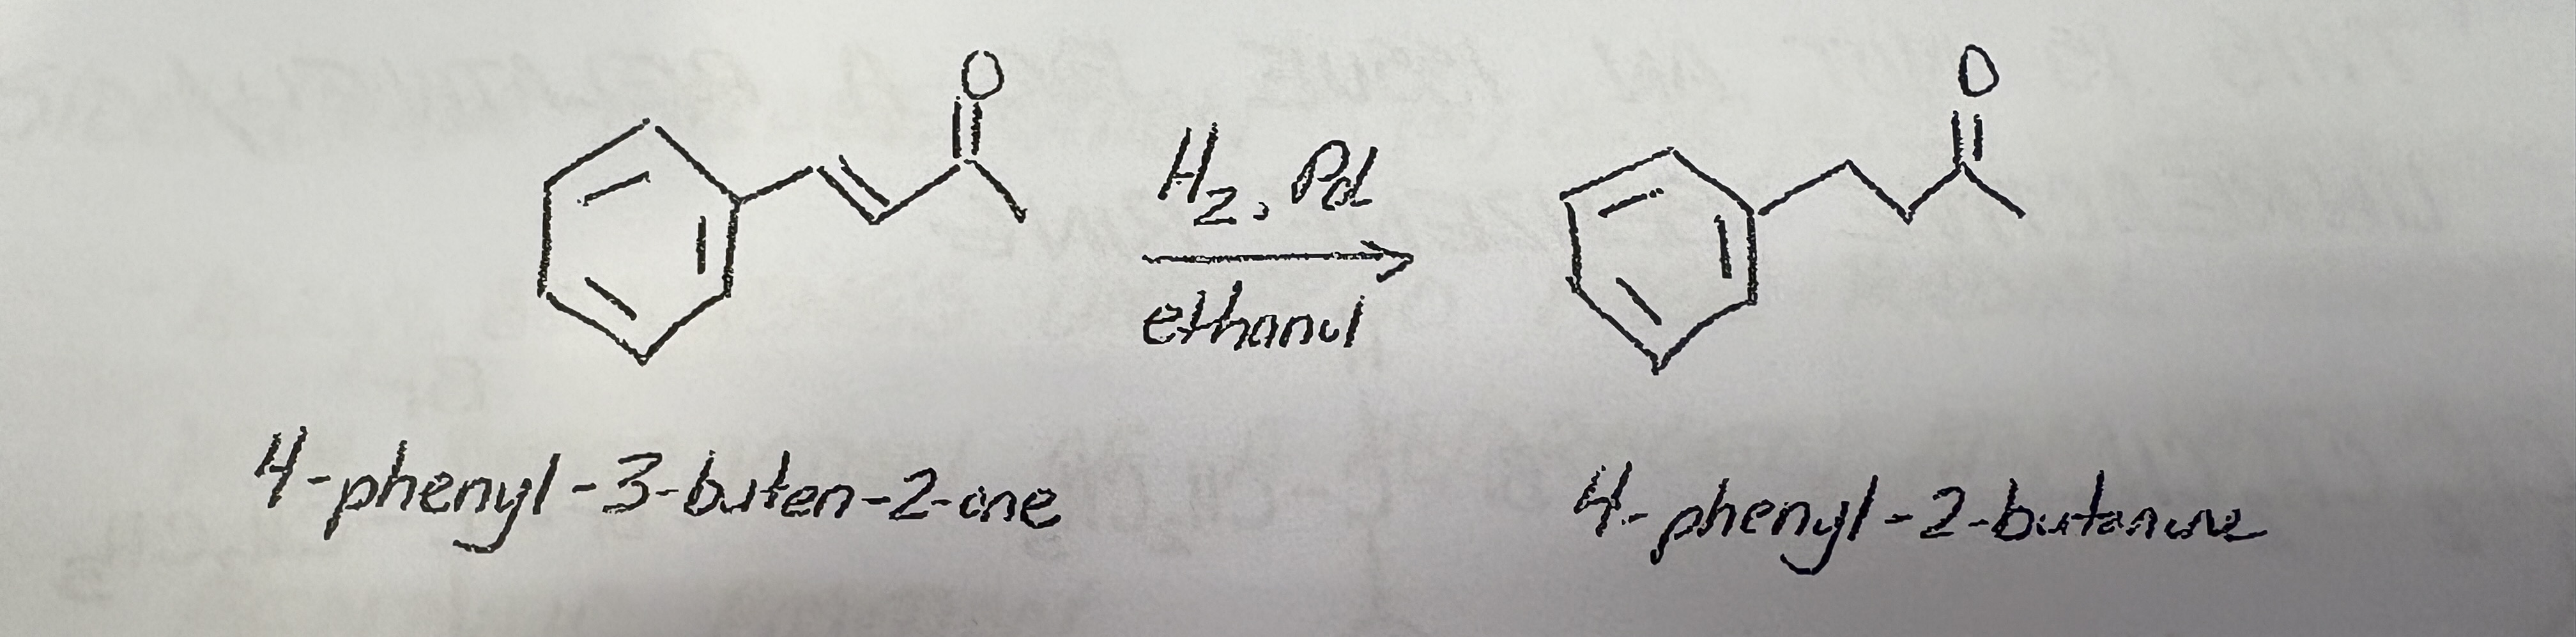 O
O
H2, Pd
ethanol
4-phenyl-3-buten-2-one
4-phenyl-2-butanone